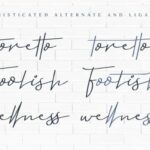 PHISTICATED ALTERNATE AND LIGA
toretto toretto
Foolish Foolish
wellness wellness